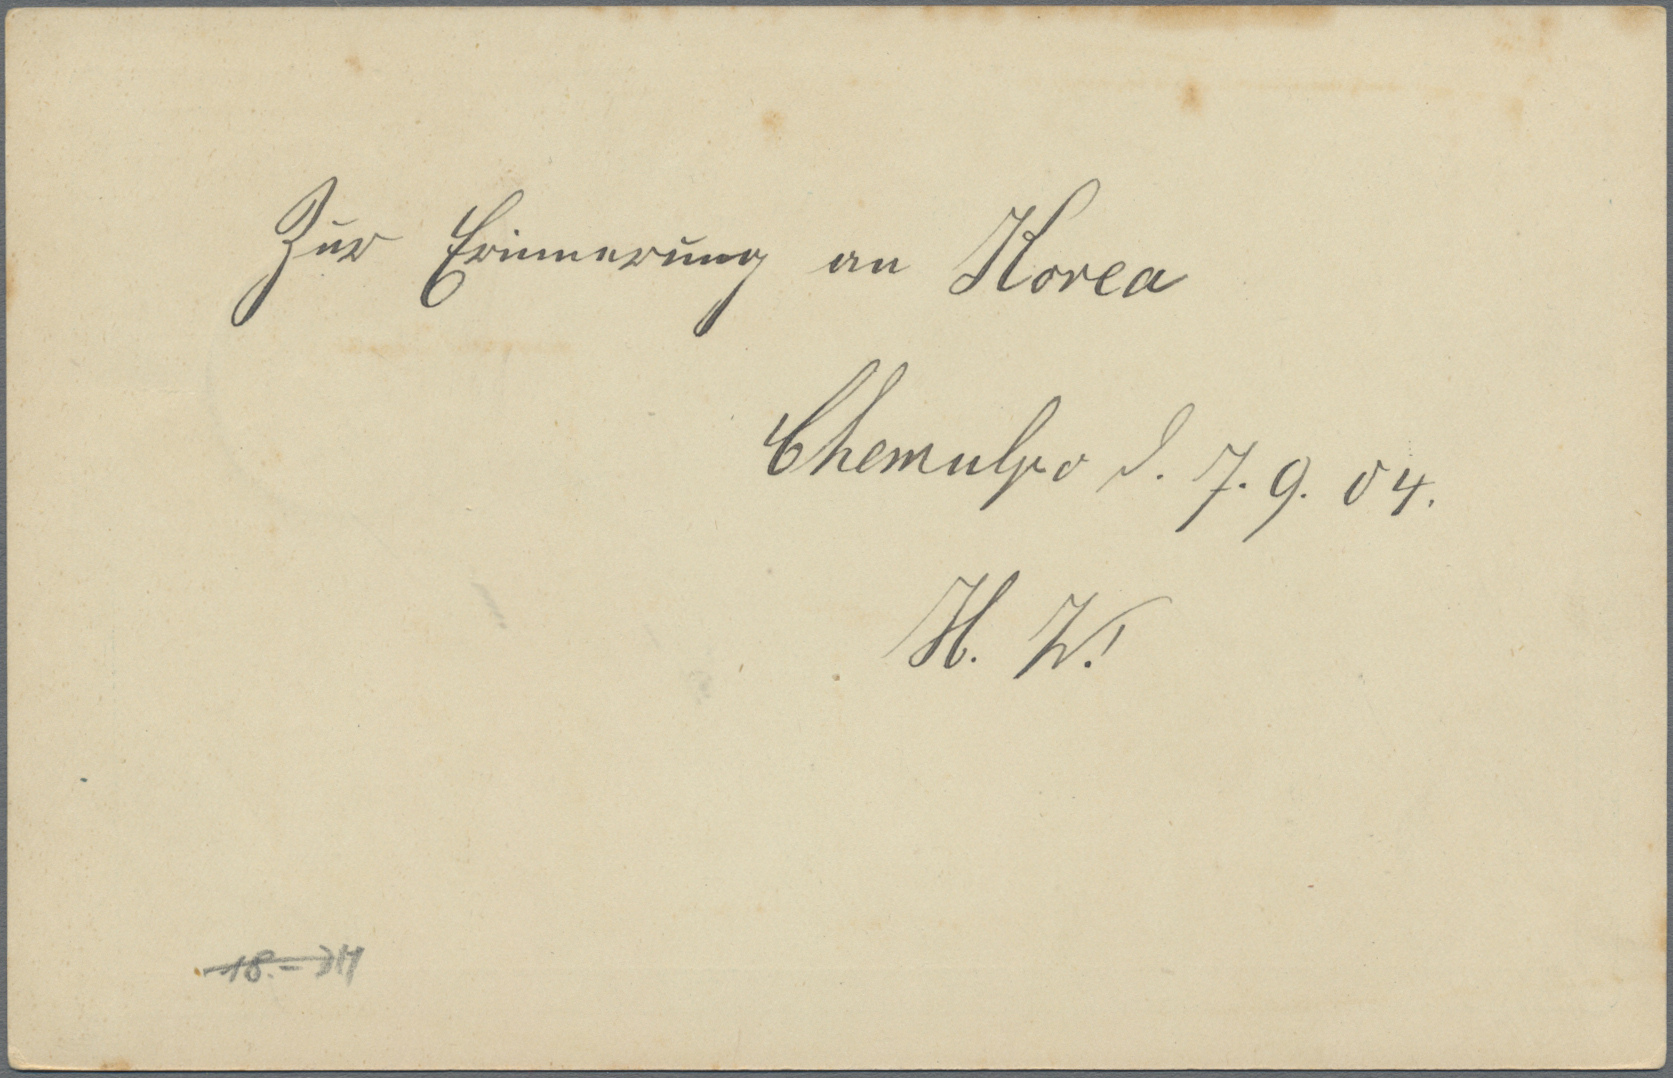 Zur Erinnerung an Korea
Chemulpo d. 7. 9. 04.
H. W.!